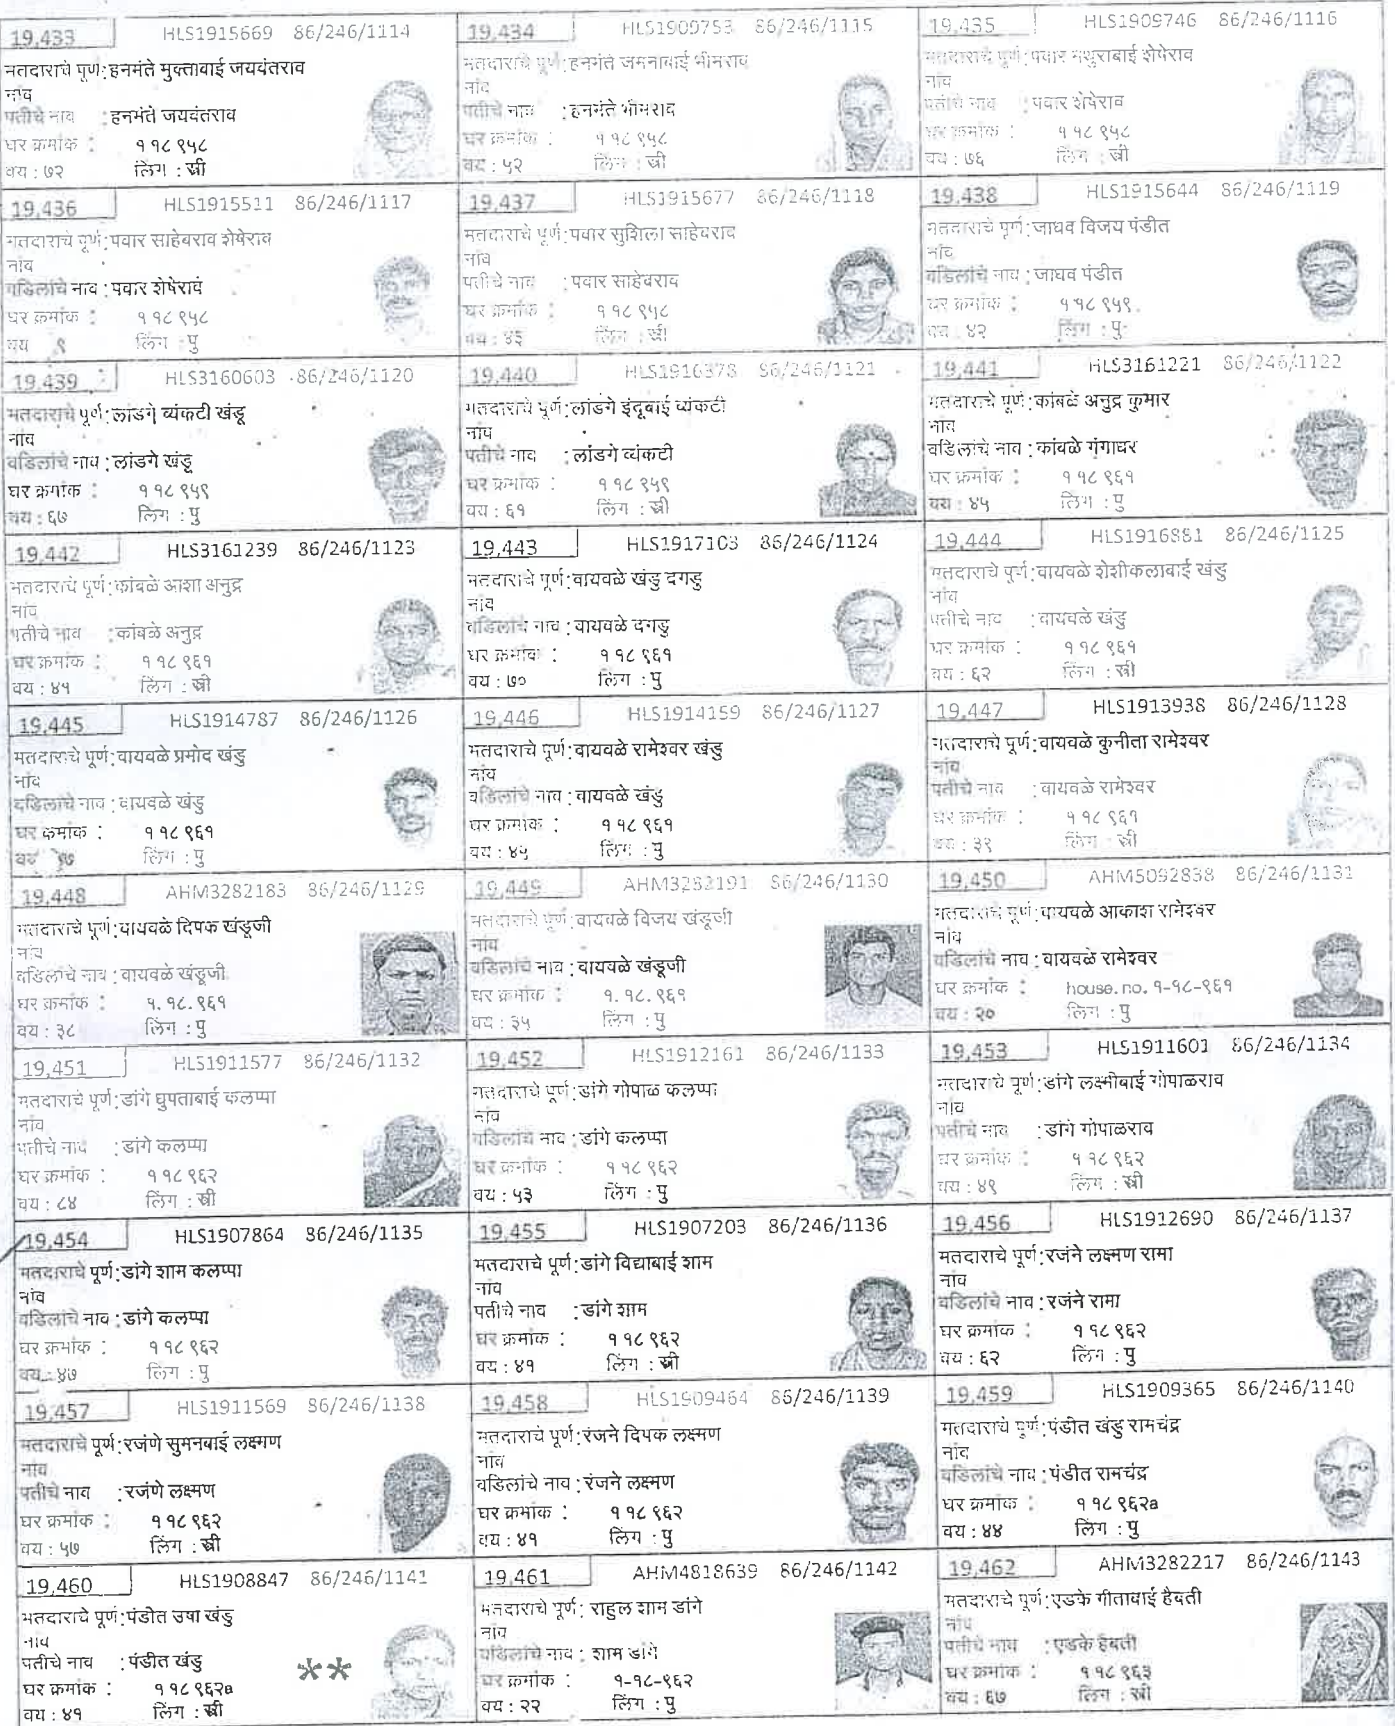 19,433 HLS1915669 86/246/1114
मतदाराचे पूर्ण:हनमंते मुक्ताबाई जयवंतराव
नांव
पतीचे नाव :हनमंते जयवंतराव
घर क्रमांक : १ १८ ९५८
वय : ७२ लिंग : स्त्री
19,434 HLS1909753 86/246/1115
मतदाराचे पूर्ण:हनमंते जमनाबाई भीमराव
नांव
पतीचे नाव :हनमंते भीमराव
घर क्रमांक : १ १८ ९५८
वय : ५२ लिंग : स्त्री
19,435 HLS1909746 86/246/1116
मतदाराचे पूर्ण:पवार मथुराबाई शेषेराव
नांव
पतीचे नाव :पवार शेषेराव
घर क्रमांक : १ १८ ९५८
वय : ७६ लिंग : स्त्री
19,436 HLS1915511 86/246/1117
मतदाराचे पूर्ण:पवार साहेबराव शेषेराव
नांव
वडिलांचे नाव :पवार शेषेराव
घर क्रमांक : १ १८ ९५८
वय लिंग : पु
19,437 HLS1915677 86/246/1118
मतदाराचे पूर्ण:पवार सुशिला साहेबराव
नांव
पतीचे नाव :पवार साहेबराव
घर क्रमांक : १ १८ ९५८
वय : ४६ लिंग : स्त्री
19,438 HLS1915644 86/246/1119
मतदाराचे पूर्ण:जाधव विजय पंडीत
नांव
वडिलांचे नाव :जाधव पंडीत
घर क्रमांक : १ १८ ९५९
वय : ४२ लिंग : पु
19,439 HLS3160603 86/246/1120
मतदाराचे पूर्ण:लांडगे व्यंकटी खंडू
नांव
वडिलांचे नाव :लांडगे खंडू
घर क्रमांक : १ १८ ९५९
वय : ६७ लिंग : पु
19,440 HLS1916378 86/246/1121
मतदाराचे पूर्ण:लांडगे इंदूबाई व्यंकटी
नांव
पतीचे नाव :लांडगे व्यंकटी
घर क्रमांक : १ १८ ९५९
वय : ६१ लिंग : स्त्री
19,441 HLS3161221 86/246/1122
मतदाराचे पूर्ण:कांबळे अनुद्र कुमार
नांव
वडिलांचे नाव :कांबळे गंगाधर
घर क्रमांक : १ १८ ९६१
वय : ४५ लिंग : पु
19,442 HLS3161239 86/246/1123
मतदाराचे पूर्ण:कांबळे आशा अनुद्र
नांव
पतीचे नाव :कांबळे अनुद्र
घर क्रमांक : १ १८ ९६१
वय : ४१ लिंग : स्त्री
19,443 HLS1917103 86/246/1124
मतदाराचे पूर्ण:वायवळे खंडु दगडु
नांव
वडिलांचे नाव :वायवळे दगडु
घर क्रमांक : १ १८ ९६१
वय : ७० लिंग : पु
19,444 HLS1916881 86/246/1125
मतदाराचे पूर्ण:वायवळे शेशीकलाबाई खंडु
नांव
पतीचे नाव :वायवळे खंडु
घर क्रमांक : १ १८ ९६१
वय : ६२ लिंग : स्त्री
19,445 HLS1914787 86/246/1126
मतदाराचे पूर्ण:वायवळे प्रमोद खंडु
नांव
वडिलांचे नाव :वायवळे खंडु
घर क्रमांक : १ १८ ९६१
वय लिंग : पु
19,446 HLS1914159 86/246/1127
मतदाराचे पूर्ण:वायवळे रामेश्वर खंडु
नांव
वडिलांचे नाव :वायवळे खंडु
घर क्रमांक : १ १८ ९६१
वय : ४५ लिंग : पु
19,447 HLS1913938 86/246/1128
मतदाराचे पूर्ण:वायवळे कुनीता रामेश्वर
नांव
पतीचे नाव :वायवळे रामेश्वर
घर क्रमांक : १ १८ ९६१
वय : ३९ लिंग : स्त्री
19,448 AHM3282183 86/246/1129
मतदाराचे पूर्ण:वायवळे दिपक खंडूजी
नांव
वडिलांचे नाव :वायवळे खंडूजी
घर क्रमांक : १. १८. ९६१
वय : ३८ लिंग : पु
19,449 AHM3282191 86/246/1130
मतदाराचे पूर्ण:वायवळे विजय खंडूजी
नांव
वडिलांचे नाव :वायवळे खंडूजी
घर क्रमांक : १. १८. ९६१
वय : ३५ लिंग : पु
19,450 AHM5092838 86/246/1131
मतदाराचे पूर्ण:वायवळे आकाश रामेश्वर
नांव
वडिलांचे नाव :वायवळे रामेश्वर
घर क्रमांक : house. no. १-१८-९६१
वय : २० लिंग : पु
19,451 HLS1911577 86/246/1132
मतदाराचे पूर्ण:डांगे घुपताबाई कलप्पा
नांव
पतीचे नाव :डांगे कलप्पा
घर क्रमांक : १ १८ ९६२
वय : ८४ लिंग : स्त्री
19,452 HLS1912161 86/246/1133
मतदाराचे पूर्ण:डांगे गोपाळ कलप्पा
नांव
वडिलांचे नाव :डांगे कलप्पा
घर क्रमांक : १ १८ ९६२
वय : ५३ लिंग : पु
19,453 HLS1911601 86/246/1134
मतदाराचे पूर्ण:डांगे लक्ष्मीबाई गोपाळराव
नांव
पतीचे नाव :डांगे गोपाळराव
घर क्रमांक : १ १८ ९६२
वय : ४९ लिंग : स्त्री
19,454 HLS1907864 86/246/1135
मतदाराचे पूर्ण:डांगे शाम कलप्पा
नांव
वडिलांचे नाव :डांगे कलप्पा
घर क्रमांक : १ १८ ९६२
वय : ४७ लिंग : पु
19,455 HLS1907203 86/246/1136
मतदाराचे पूर्ण:डांगे विद्याबाई शाम
नांव
पतीचे नाव :डांगे शाम
घर क्रमांक : १ १८ ९६२
वय : ४१ लिंग : स्त्री
19,456 HLS1912690 86/246/1137
मतदाराचे पूर्ण:रजंने लक्ष्मण रामा
नांव
वडिलांचे नाव :रजंने रामा
घर क्रमांक : १ १८ ९६२
वय : ६२ लिंग : पु
19,457 HLS1911569 86/246/1138
मतदाराचे पूर्ण:रजंणे सुमनबाई लक्ष्मण
नांव
पतीचे नाव :रजंणे लक्ष्मण
घर क्रमांक : १ १८ ९६२
वय : ५७ लिंग : स्त्री
19,458 HLS1909464 86/246/1139
मतदाराचे पूर्ण:रंजने दिपक लक्ष्मण
नांव
वडिलांचे नाव :रंजने लक्ष्मण
घर क्रमांक : १ १८ ९६२
वय : ४१ लिंग : पु
19,459 HLS1909365 86/246/1140
मतदाराचे पूर्ण:पंडीत खंडु रामचंद्र
नांव
वडिलांचे नाव :पंडीत रामचंद्र
घर क्रमांक : १ १८ ९६२a
वय : ४४ लिंग : पु
19,460 HLS1908847 86/246/1141
मतदाराचे पूर्ण:पंडीत उषा खंडु
नांव
पतीचे नाव :पंडीत खंडु **
घर क्रमांक : १ १८ ९६२a
वय : ४१ लिंग : स्त्री
19,461 AHM4818639 86/246/1142
मतदाराचे पूर्ण: राहुल शाम डांगे
नांव
वडिलांचे नाव : शाम डांगे
घर क्रमांक : १-१८-९६२
वय : २२ लिंग : पु
19,462 AHM3282217 86/246/1143
मतदाराचे पूर्ण:एडके गीताबाई हैबती
नांव
पतीचे नाव :एडके हैबती
घर क्रमांक : १ १८ ९६३
वय : ६७ लिंग : स्त्री